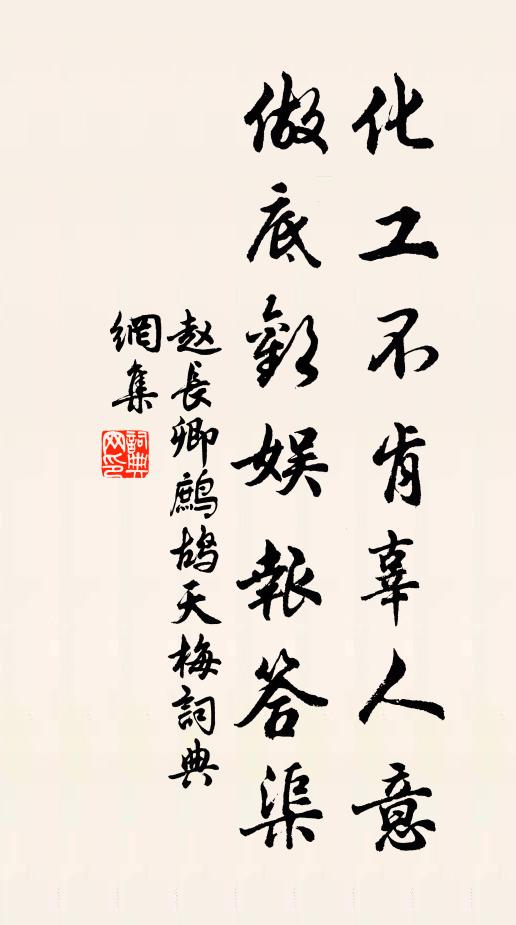 化工不肯辜人意
做底歡娱報答渠
赵長卿鷓鴣天梅詞典
網集
詞典
网印